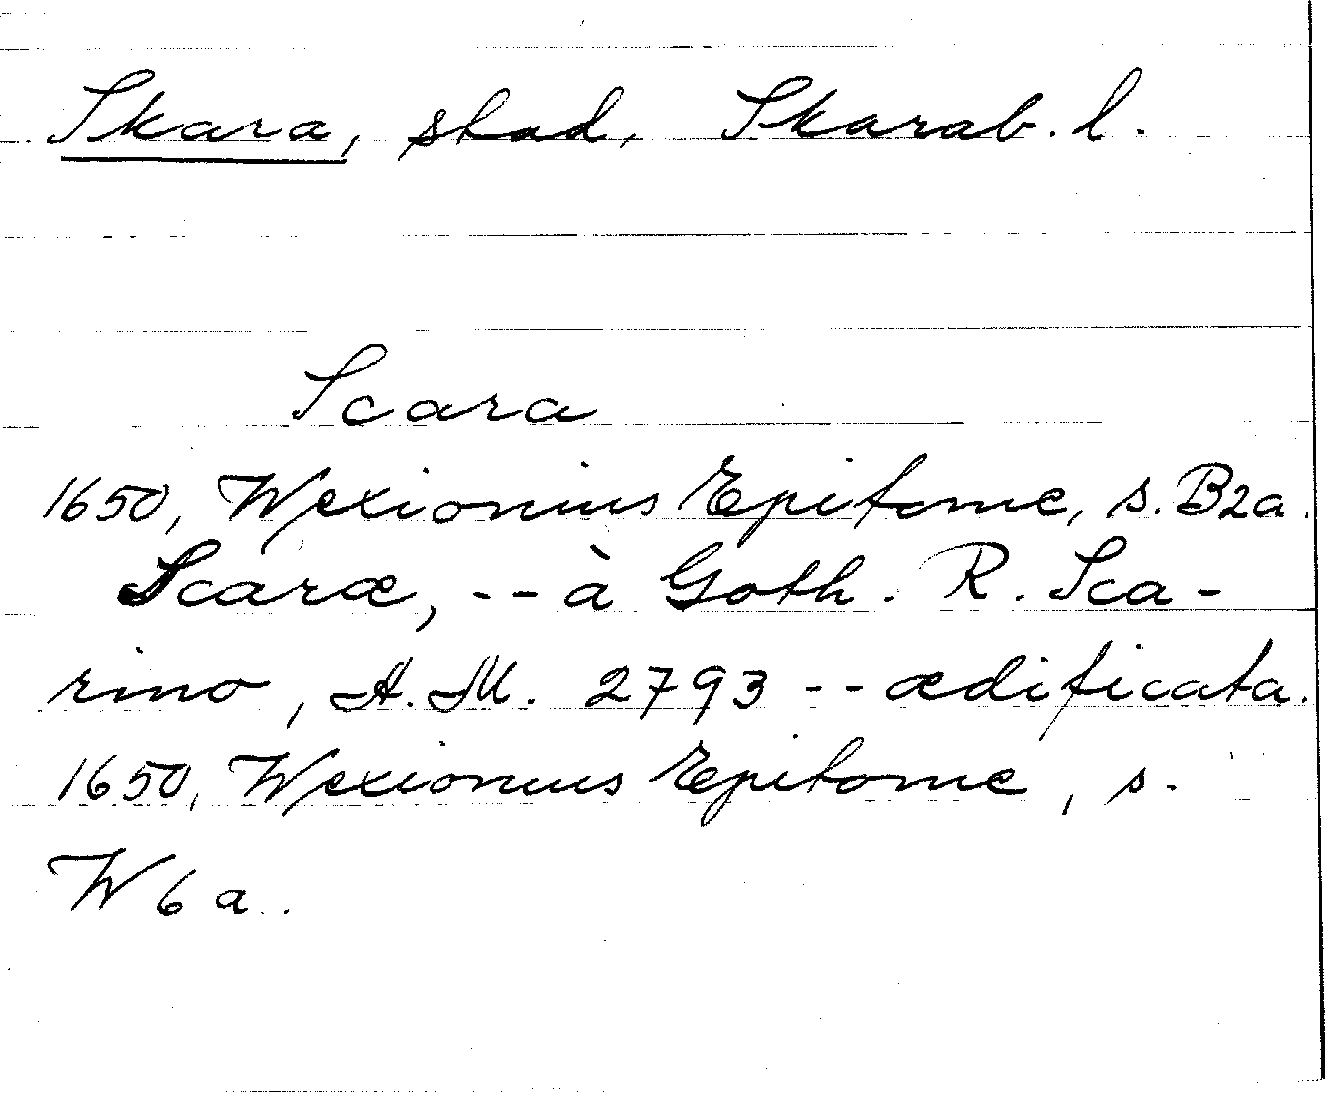 Skara, stad, Skarab. l.
Scara
1650, Wexionius Epitome, s. B2a.
Scaræ, -- à Goth. R. Sca-
rino, A.M. 2793 -- ædificata.
1650, Wexionius Epitome, s.
W6a.